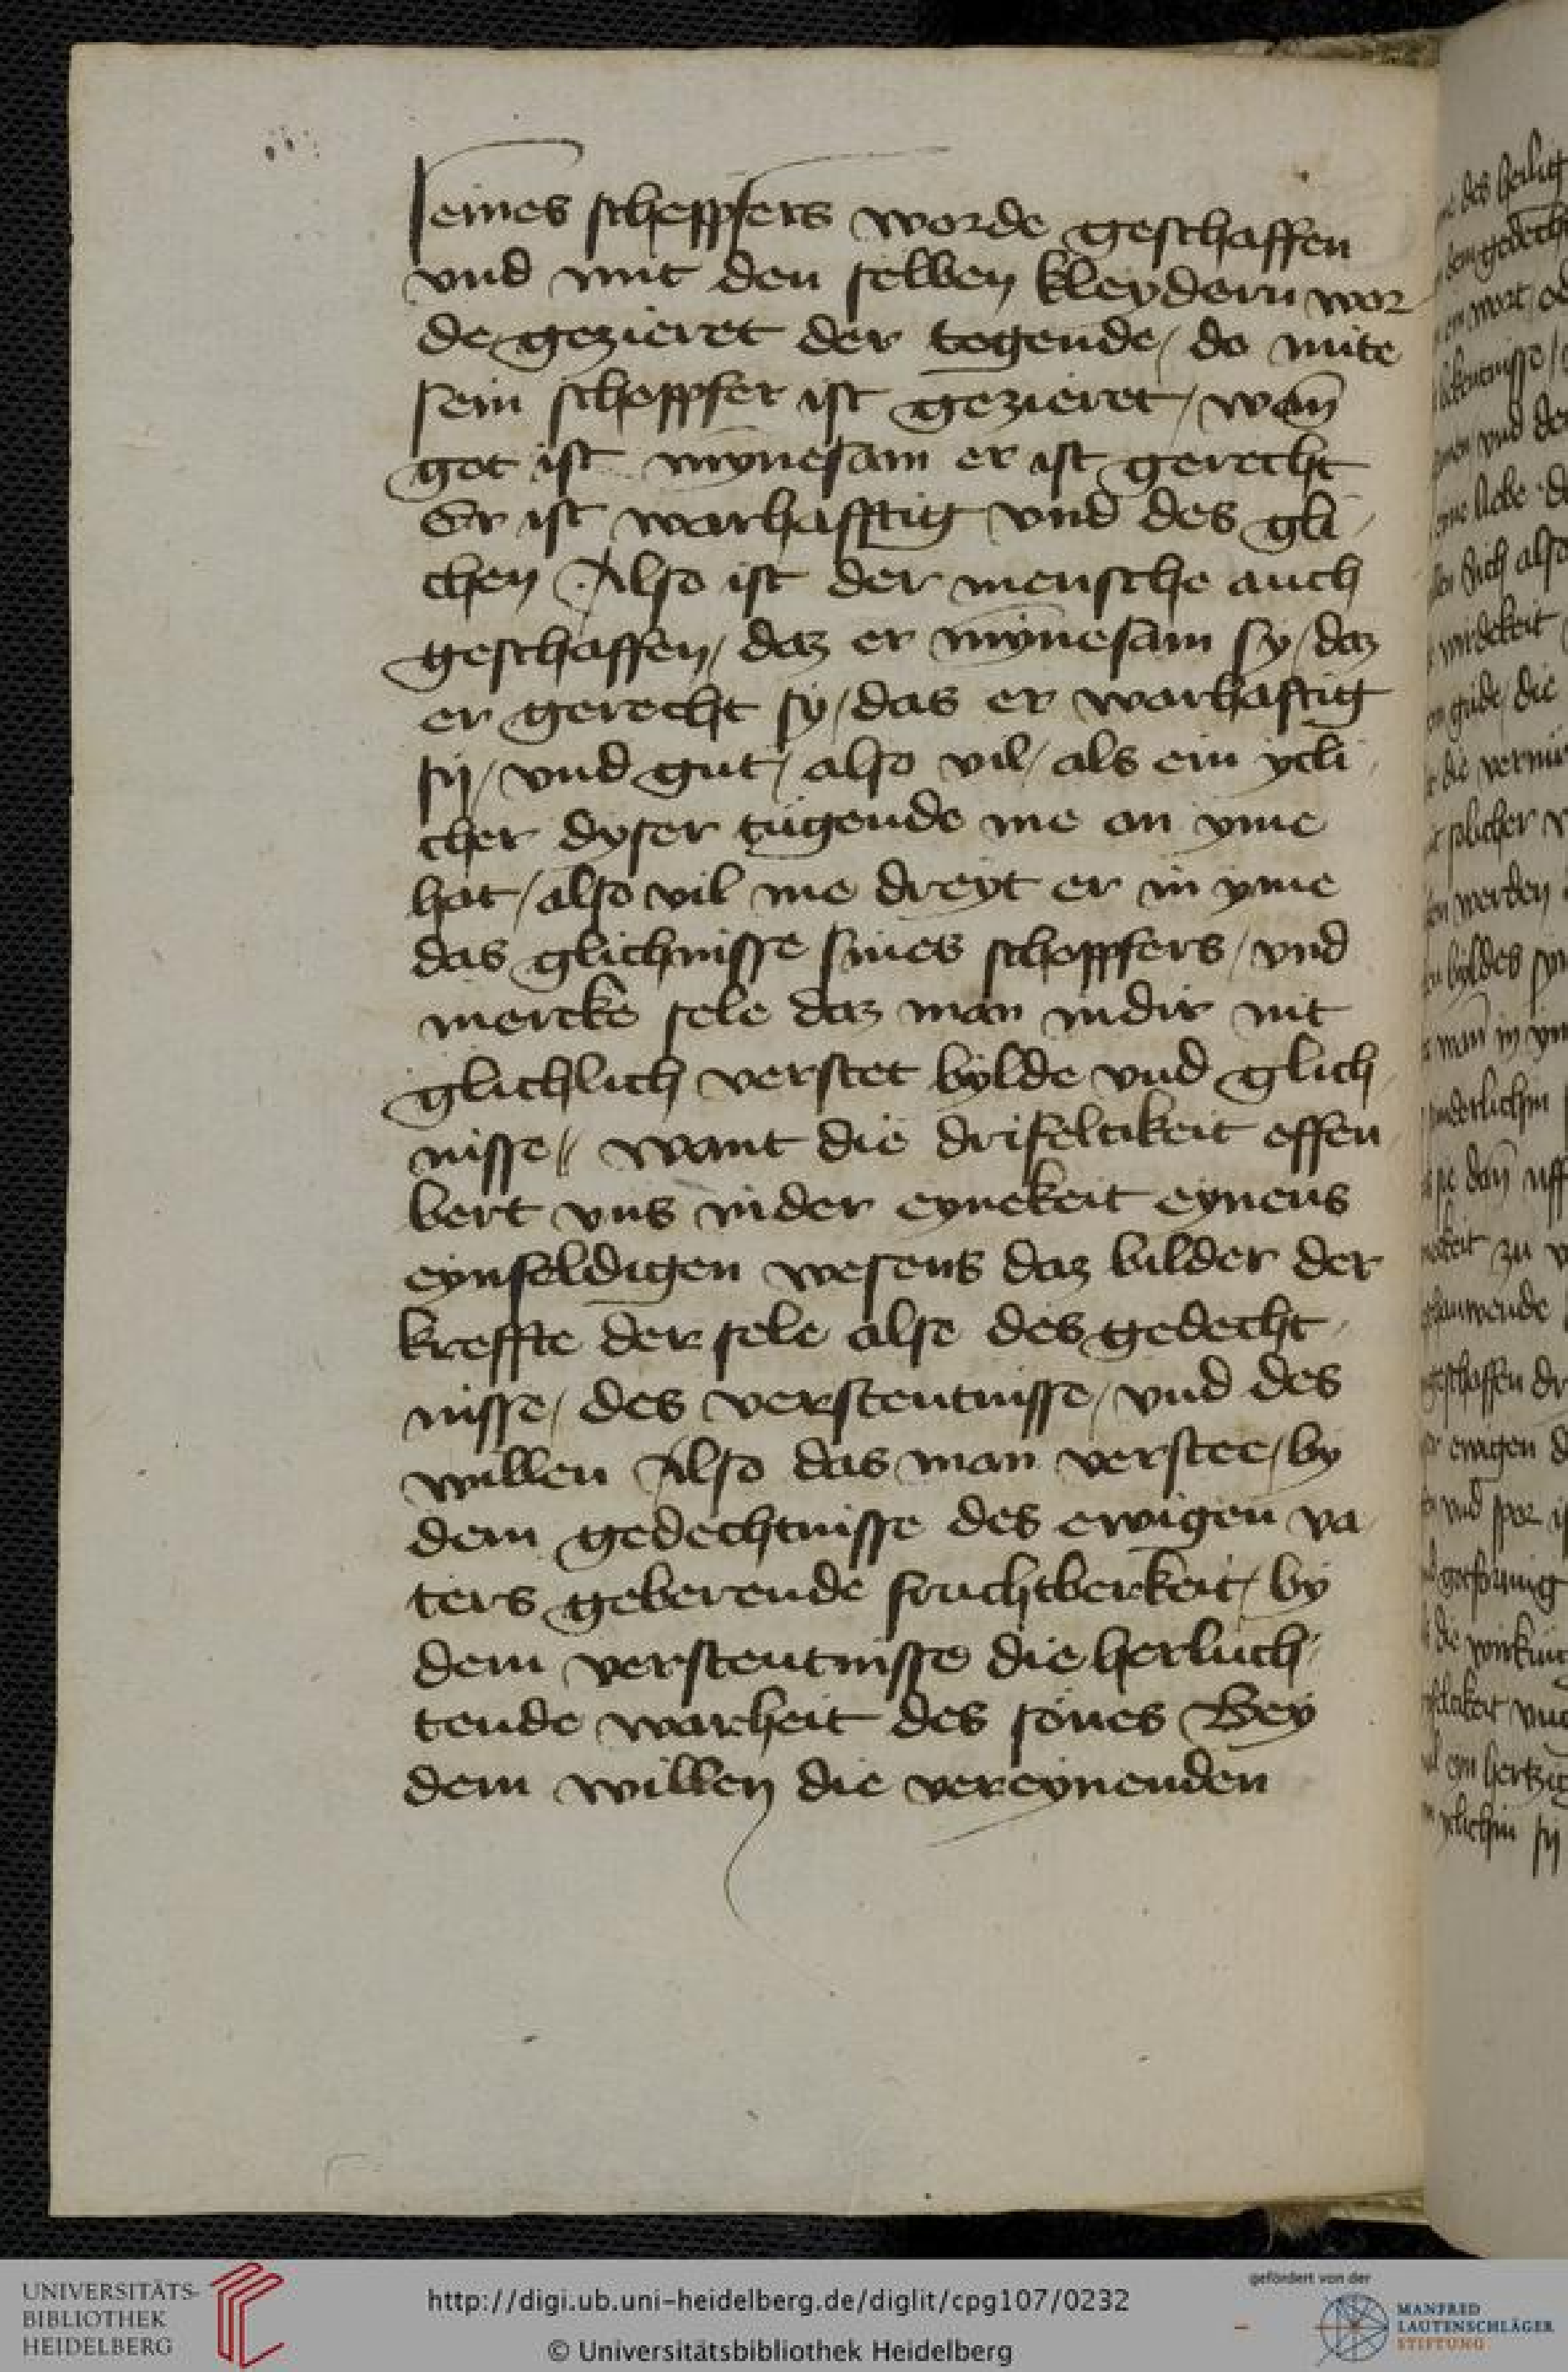 seines scheppfers worde geschaffen
vnd mit den selben kleydern wor
de gezieret der togende / do mite
sein scheppfer ist gezieret / wan̄
got ist mÿnesam er ist gerecht
Er ist warhafftig vnd des gli
chen Also ist der mensche auch
geschaffen / daz er mÿnesam sy / daz
er gerecht sÿ / das er warhafftig
sij / vnd gut / also vil / als ein ycli
cher dyser tugende me an yme
hat / also vil me dreyt er in yme
das glichnisse sines scheppfers / vnd
mercke sele daz man indir nit
glichlich verstet bÿlde vnd glich
nisse // want die drifeltikeit offen
bert vns inder eynekeit eynens
eynfeldigen wesens daz bilder der
kreffte der sele also des gedecht
nisse / des verstentnisse / vnd des
willen Also das man verstee / by
dem gedechtnisse des ewigen va
ters geberende fruchtberkeit / by
dem verstentnisse die herluch
tende warheit des sönes Bey
dem willen die vereynenden
UNIVERSITÄTS-
BIBLIOTHEK
HEIDELBERG
http://digi.ub.uni-heidelberg.de/diglit/cpg107/0232
© Universitätsbibliothek Heidelberg
gefördert von der
MANFRED
LAUTENSCHLÄGER
STIFTUNG